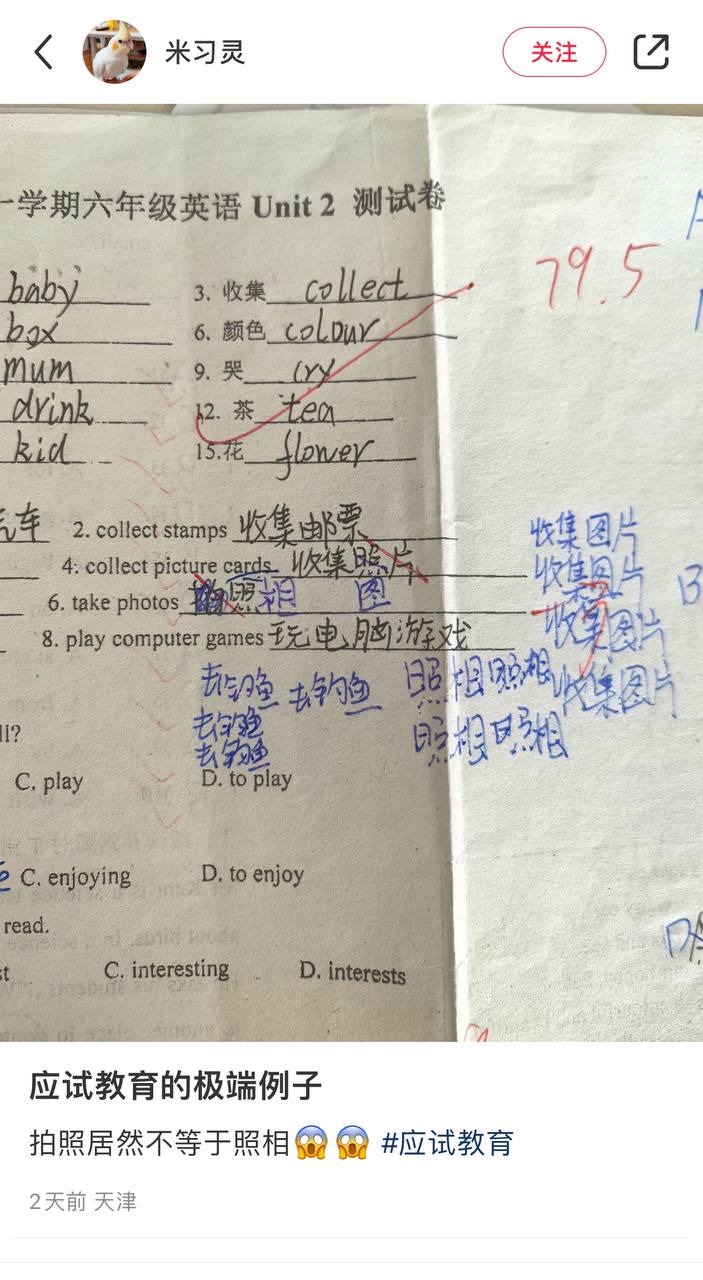 米习灵
关注
一学期六年级英语 Unit 2 测试卷
79.5
baby 3. 收集 collect
box 6. 颜色 colour
mum 9. 哭 cry
drink 12. 茶 tea
kid 15.花 flower
汽车 2. collect stamps 收集邮票
收集图片
4. collect picture cards 收集照片
收集图片
6. take photos 照相 图
收集图片
8. play computer games 玩电脑游戏
去钓鱼 去钓鱼 照相 照相 收集图片
去钓鱼 照相 照相
去钓鱼
C. play D. to play
C. enjoying D. to enjoy
read.
C. interesting D. interests
应试教育的极端例子
拍照居然不等于照相😱😱 #应试教育
2天前 天津